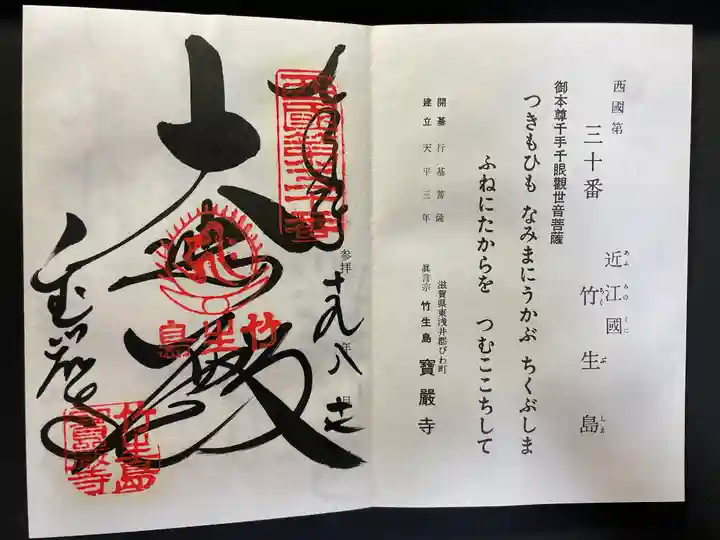 西國第
三十番
近江國
あふみのくに
竹生島
ちくぶしま
御本尊千手千眼觀世音菩薩
つきもひも なみまにうかぶ ちくぶしま
ふねにたからを つむここちして
開基 行基菩薩
建立 天平三年
滋賀県東浅井郡びわ町
眞言宗 竹生島 寶嚴寺
西國第三十番
参拝
年
月
十九 八 十七
大悲殿
竹生島
竹生島
寶嚴寺